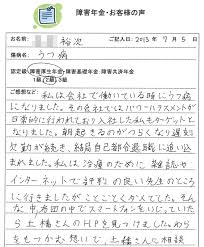 障害年金・お客様の声
裕次
ご記入日：2013年7月5日
傷病名：うつ病
認定級：障害厚生年金・障害基礎年金・障害共済年金
1級 2級 3級
ご感想など：私は会社で働いている時にうつ病
になりました。その会社ではパワーハラスメントが
日常的に行われており入社した私もターゲットと
なりました。朝起きるのがつらくなり遅刻
欠勤が続き、結局自己都合退職に追い込
まれました。私は治療のために雑誌や
インターネットで評判の良い先生のところ
に行きましたがことごとくかえてきた。そん
な中、布団の中でスマートフォンをいじっていた
ら土橋さんのHPを見つけました。わら
をもつかむ想いで、土橋さんに相談